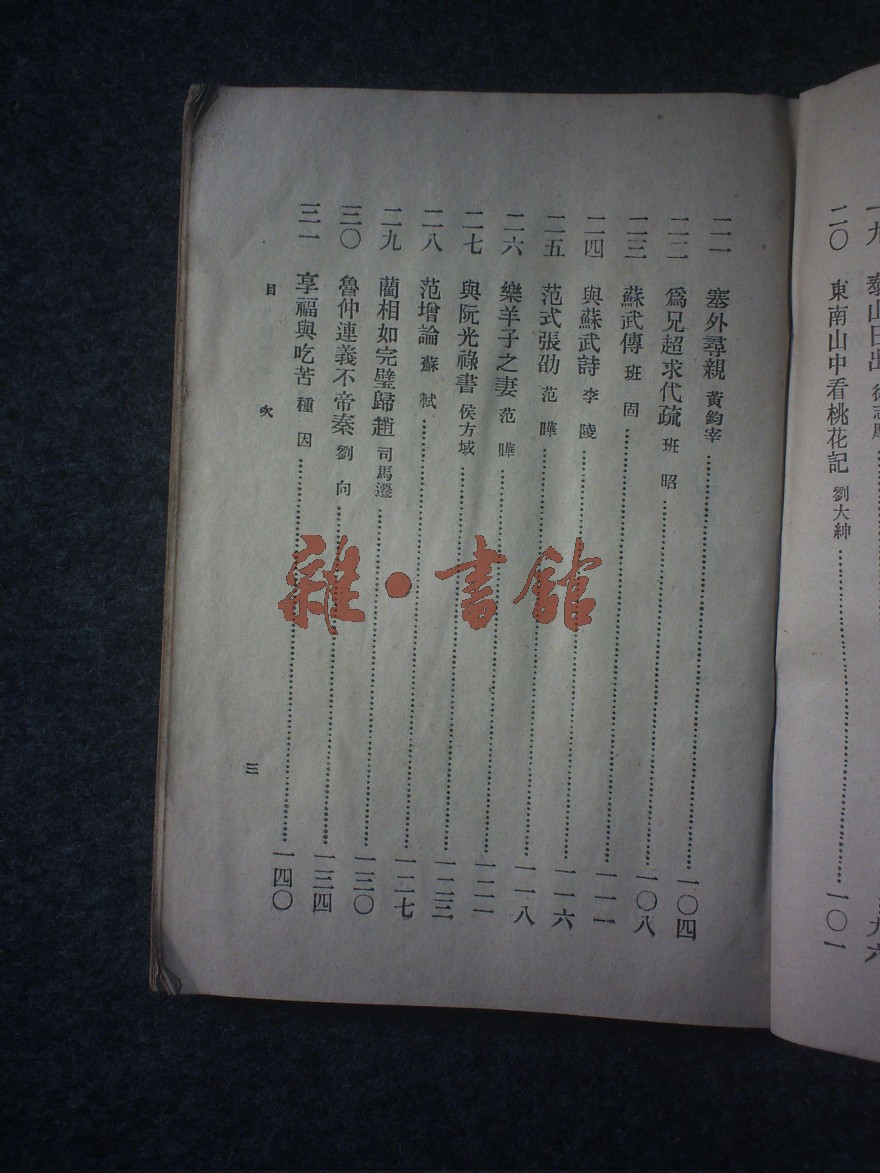 一九 泰山日出 徐志摩……九六
二〇 東南山中看桃花記 劉大紳……一〇一
二一 塞外尋親 黃鈞宰……一〇四
二二 爲兄超求代疏 班昭……一〇八
二三 蘇武傳 班固……一一一
二四 與蘇武詩 李陵……一一六
二五 范式張劭 范曄……一一八
二六 樂羊子之妻 范曄……一二一
二七 與阮光祿書 侯方域……一二三
二八 范增論 蘇軾……一二七
二九 藺相如完璧歸趙 司馬遷……一三〇
三〇 魯仲連義不帝秦 劉向……一三四
三一 享福與吃苦 種因……一四〇
目次
三
雜·書館